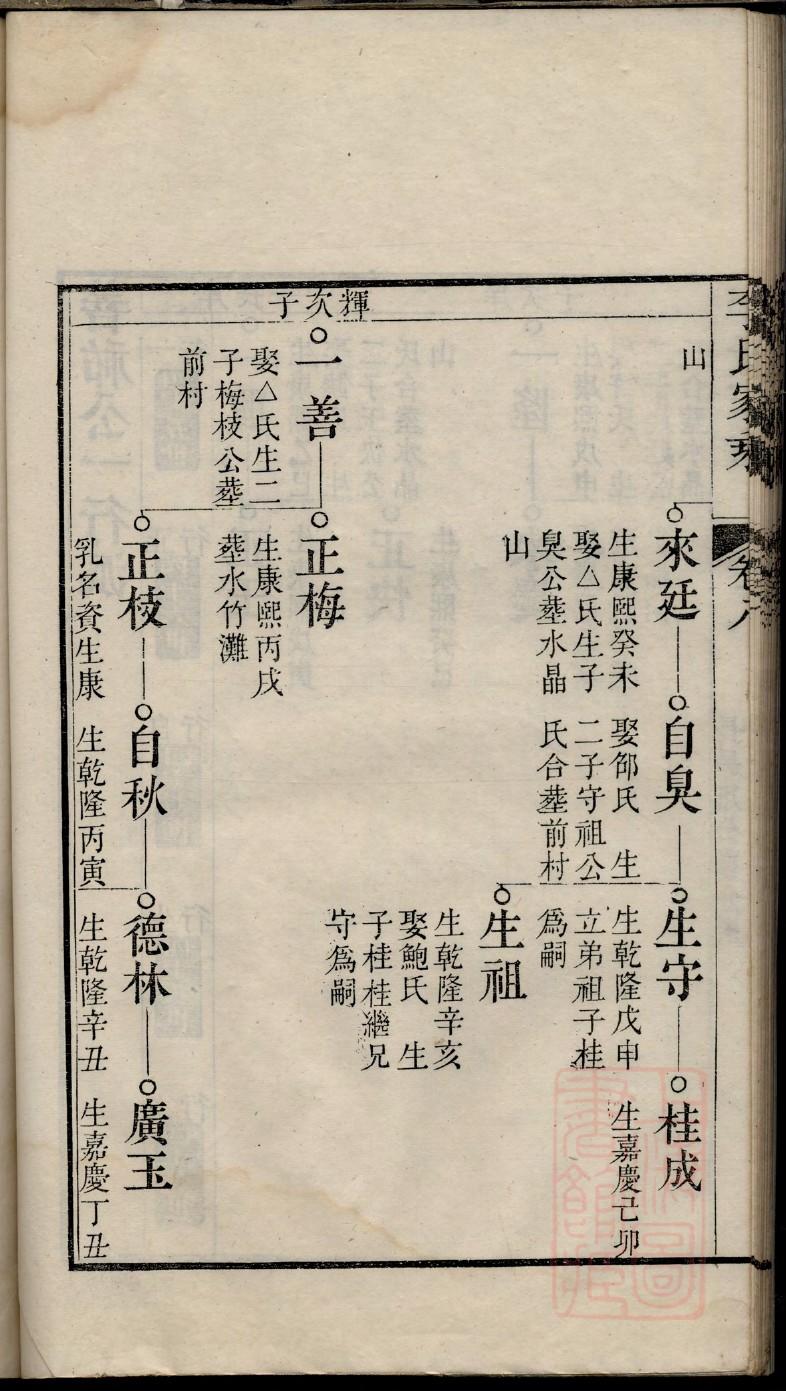 李氏家乘
卷八
山
來廷
生康熙癸未
娶△氏生子
臭公塟水晶
山
自臭
娶邰氏 生
二子守祖公
氏合塟前村
生守
生乾隆戊申
立弟祖子桂
爲嗣
桂成
生嘉慶己卯
生祖
生乾隆辛亥
娶鮑氏 生
子桂桂繼兄
守爲嗣
輝次子
一善
娶△氏生二
子梅枝公塟
前村
正梅
生康熙丙戌
塟水竹灘
正枝
乳名資生康
自秋
生乾隆丙寅
德林
生乾隆辛丑
廣玉
生嘉慶丁丑